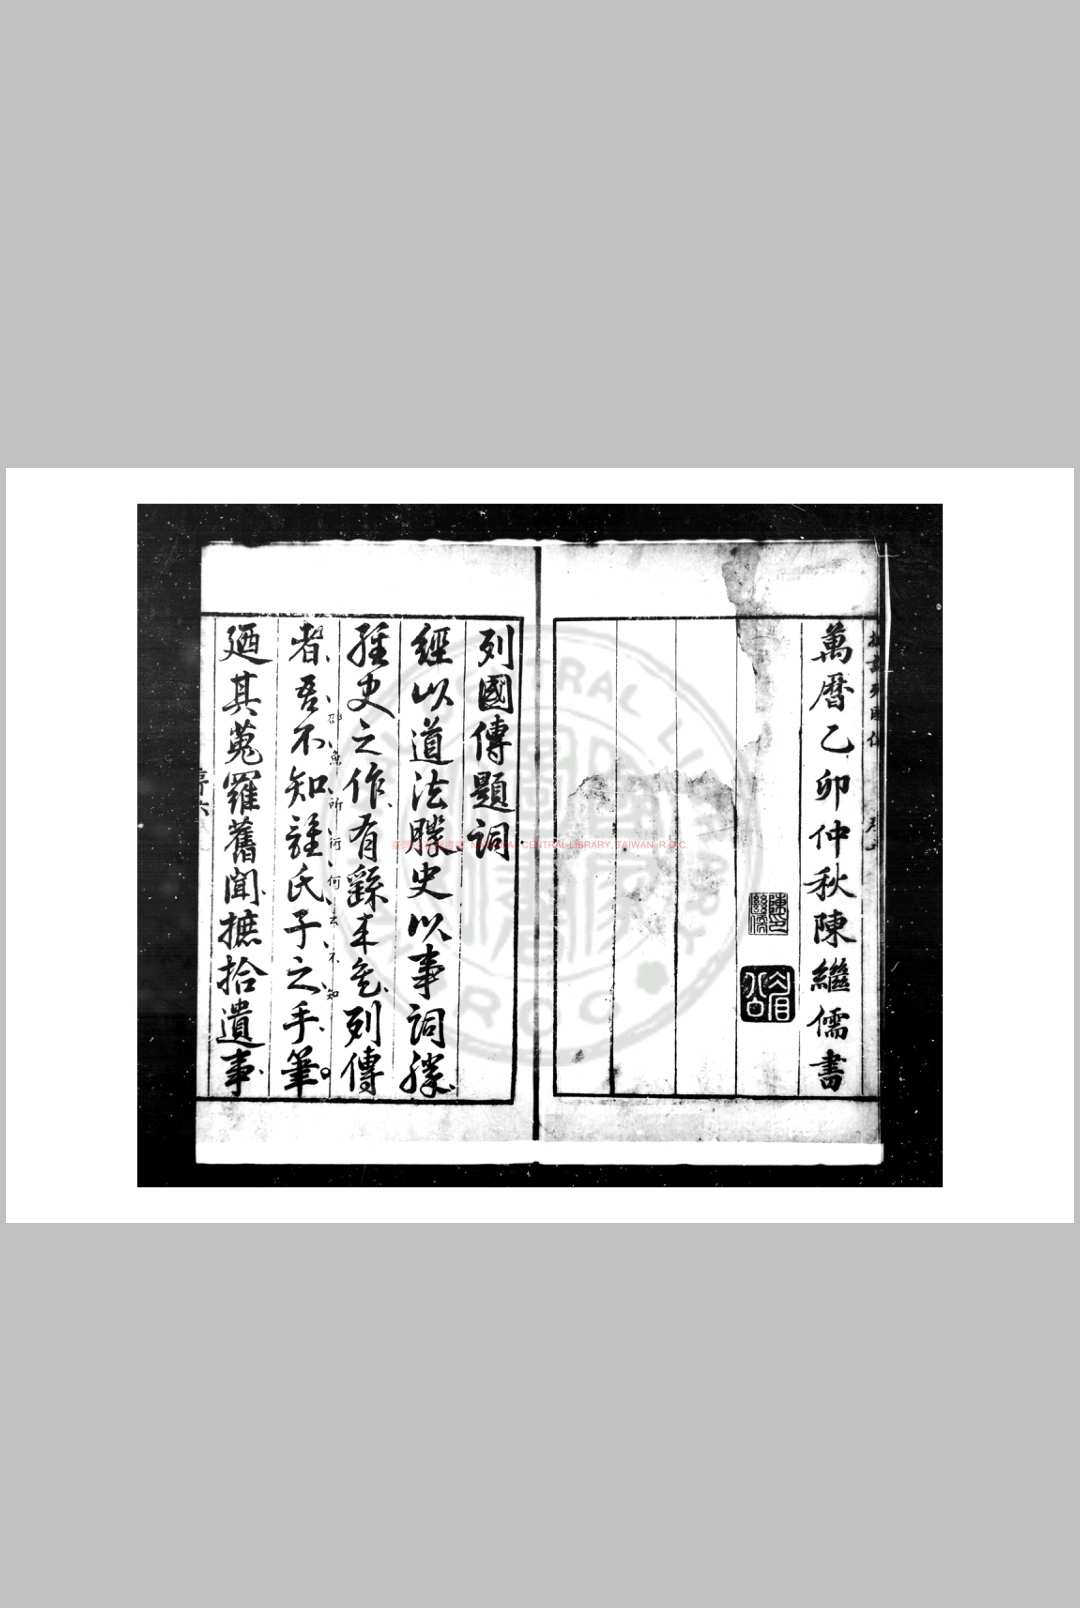 萬曆乙卯仲秋陳繼儒書
列國傳題詞
經以道法勝史以事詞勝
經史之作有繇來矣列傳
者吾不知誰氏子之手筆
迺其蒐羅舊聞摭拾遺事
序六
CENTRAL LIBRARY, TAIWAN, R.O.C.